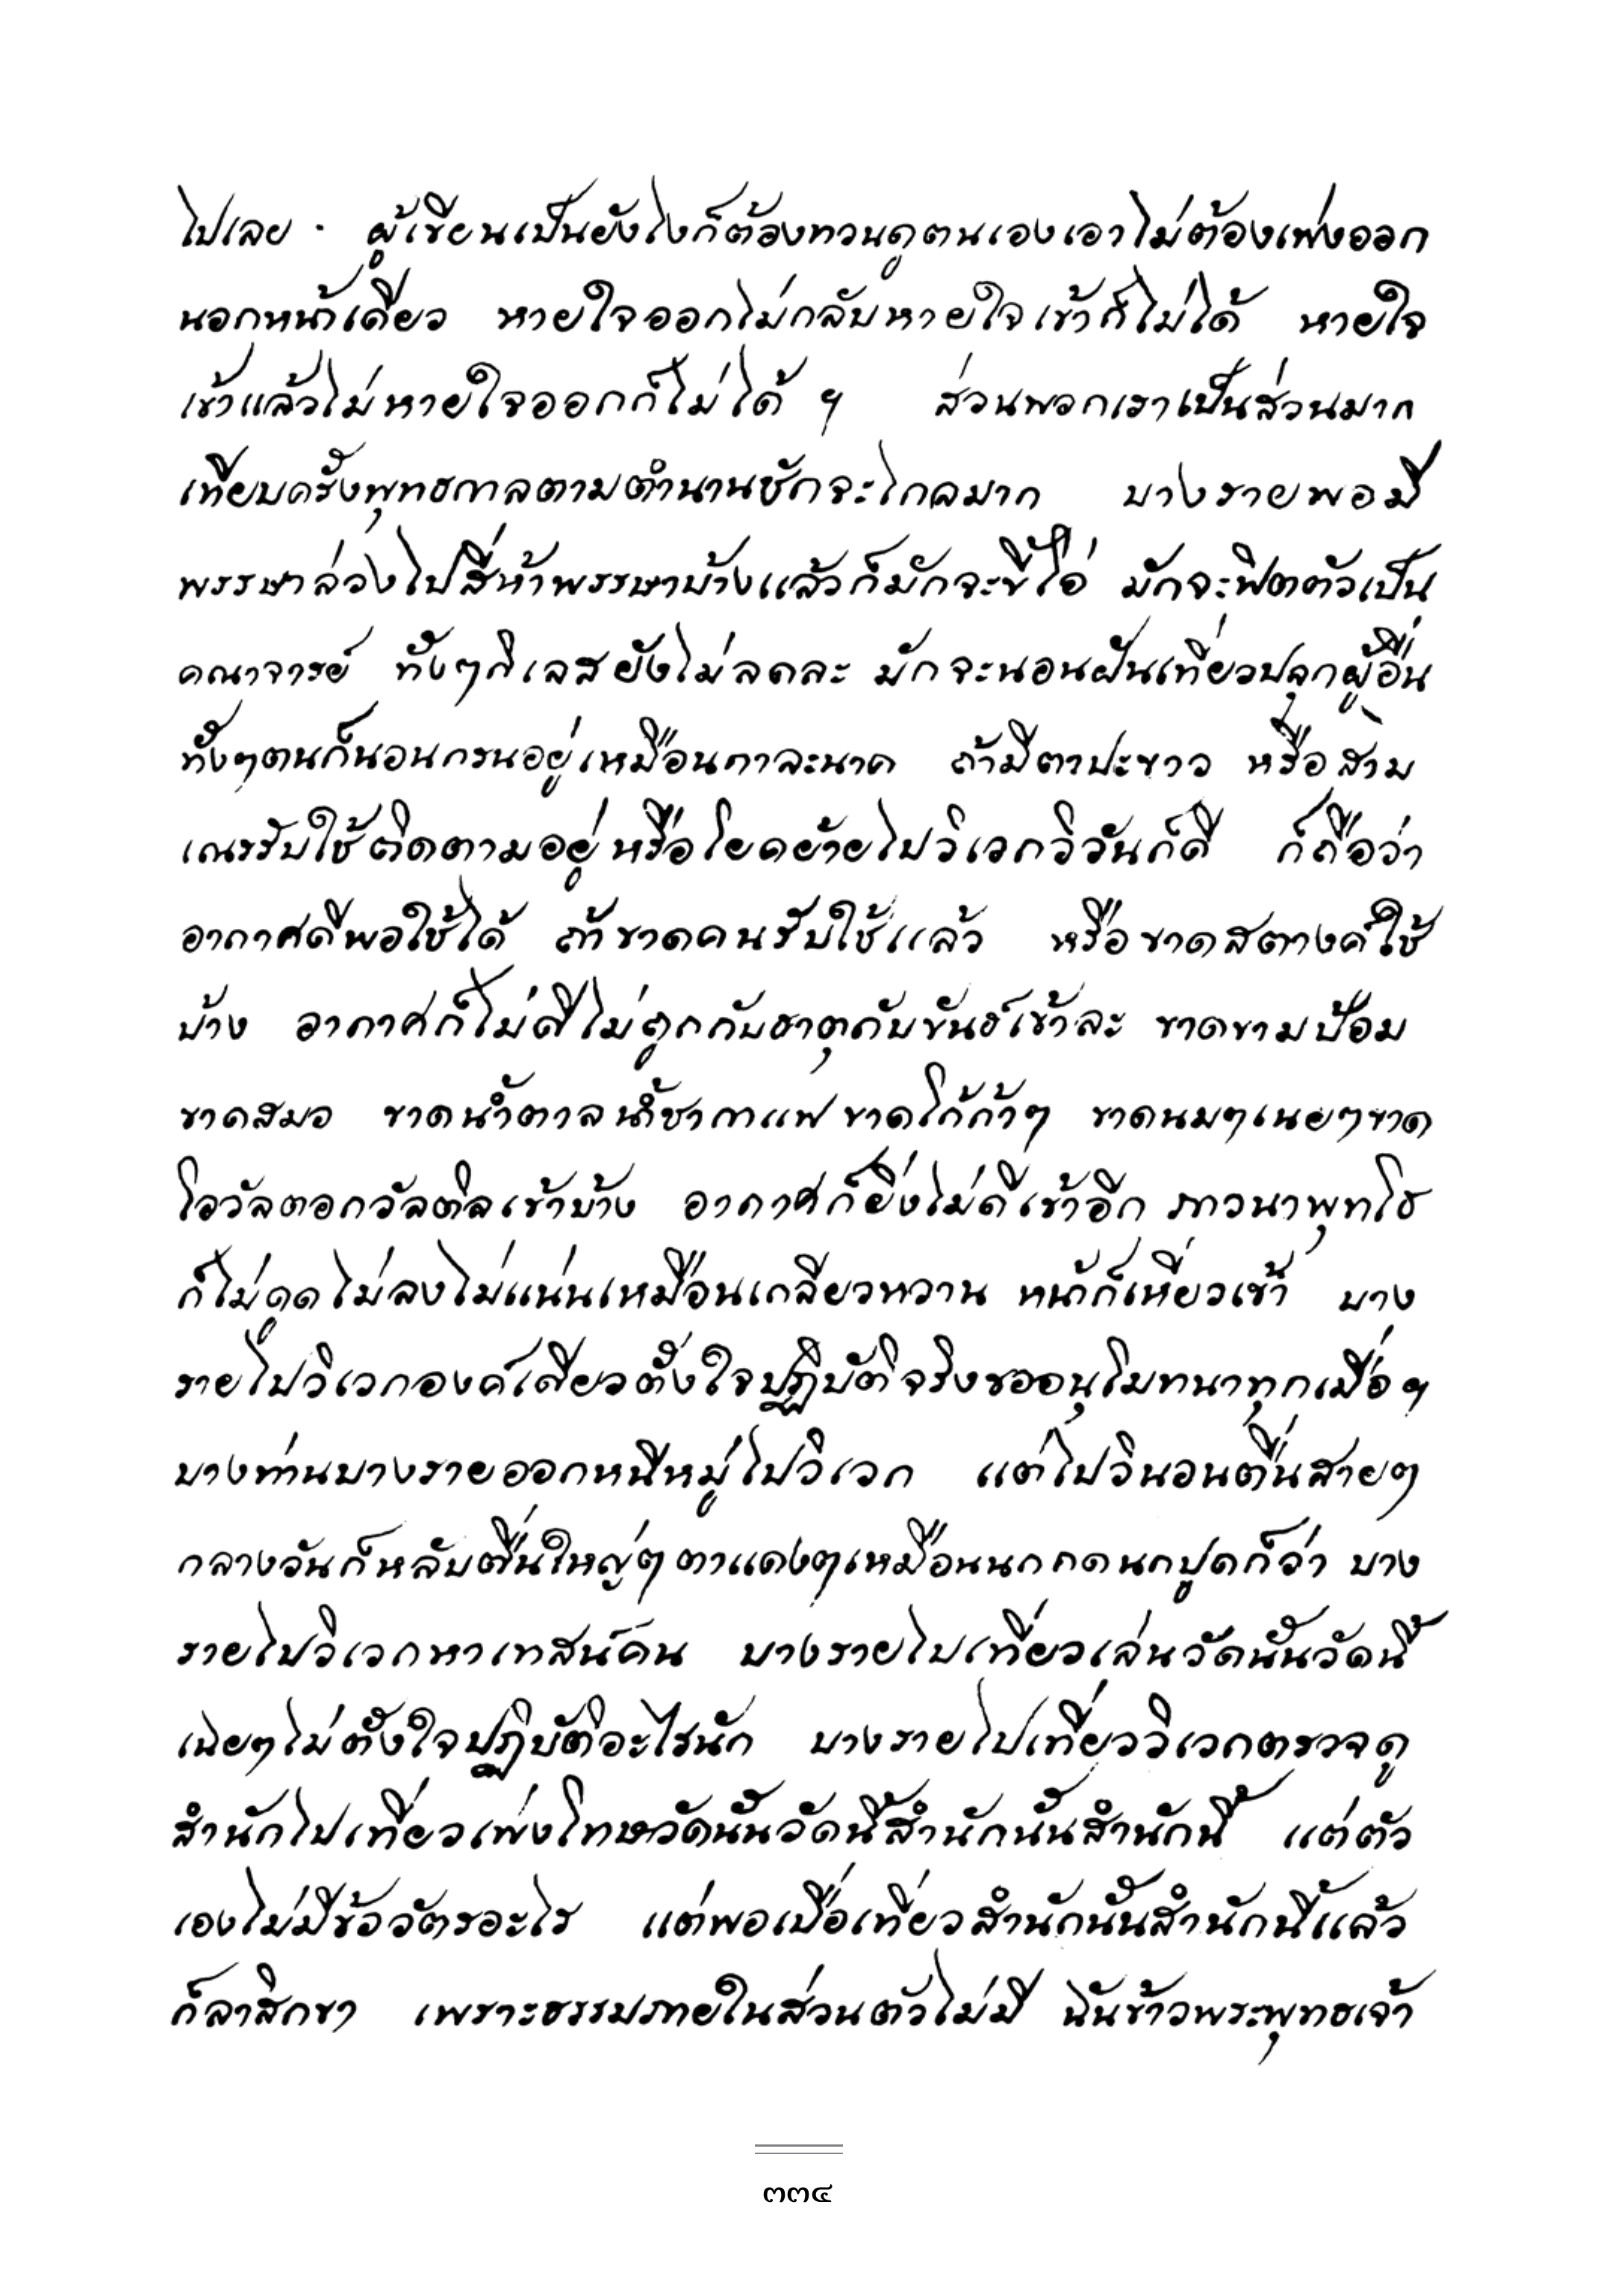 ไปเลย . ผู้เขียนเป็นยังไงก็ต้องทวนดูตนเองเอาไม่ต้องเพ่งออก
นอกหน้าเดียว หายใจออกไม่กลับหายใจเข้าก็ไม่ได้ หายใจ
เข้าแล้วไม่หายใจออกก็ไม่ได้ ฯ ส่วนพวกเราเป็นส่วนมาก
เทียบครั้งพุทธกาลตามตำนานชักจะไกลมาก บางรายพอมี
พรรษาล่วงไปสี่ห้าพรรษาบ้างแล้วก็มักจะขี้โอ่ มักจะฟิตตัวเป็น
คณาจารย์ ทั้งๆกิเลสยังไม่ลดละ มักจะนอนฝันเที่ยวปลุกผู้อื่น
ทั้งๆตนก็นอนกรนอยู่เหมือนกาละนาค ถ้ามีตาปะขาว หรือสาม
เณรรับใช้ติดตามอยู่หรือโยคย้ายไปวิเวกวิวันก็ดี ก็ถือว่า
อากาศดีพอใช้ได้ ถ้าขาดคนรับใช้แล้ว หรือขาดสตางค์ใช้
บ้าง อากาศก็ไม่ดีไม่ถูกกับธาตุกับขันธ์เข้าละ ขาดขามป้อม
ขาดสมอ ขาดน้ำตาลน้ำชากาแฟขาดโก้ก้าๆ ขาดนมๆเนยๆขาด
โอวัลตอกวัลติลเข้าบ้าง อากาศก็ยิ่งไม่ดีเข้าอีก ภาวนาพุทโธ
ก็ไม่ดูดไม่ลงไม่แน่นเหมือนเกลียวหวาน หน้าก็เหี่ยวเข้า บาง
รายไปวิเวกองค์เดียวตั้งใจปฏิบัติจริงขออนุโมทนาทุกเมื่อ ฯ
บางท่านบางรายออกหนีหมู่ไปวิเวก แต่ไปวินอนตื่นสายๆ
กลางวันก็หลับตื่นใหญ่ๆตาแดงๆเหมือนนกกดนกปูดก็ว่า บาง
รายไปวิเวกหาเทสน์คน บางรายไปเที่ยวเล่นวัดนั้นวัดนี้
เฉยๆไม่ตั้งใจปฏิบัติอะไรนัก บางรายไปเที่ยววิเวกตรวจดู
สำนักไปเที่ยวเพ่งโทษวัดนั้นวัดนี้สำนักนั้นสำนักนี้ แต่ตัว
เองไม่มีข้อวัตรอะไร แต่พอเบื่อเที่ยวสำนักนั้นสำนักนี้แล้ว
ก็ลาสิกขา เพราะธรรมภายในส่วนตัวไม่มี ฉันข้าวพระพุทธเจ้า
๓๓๔